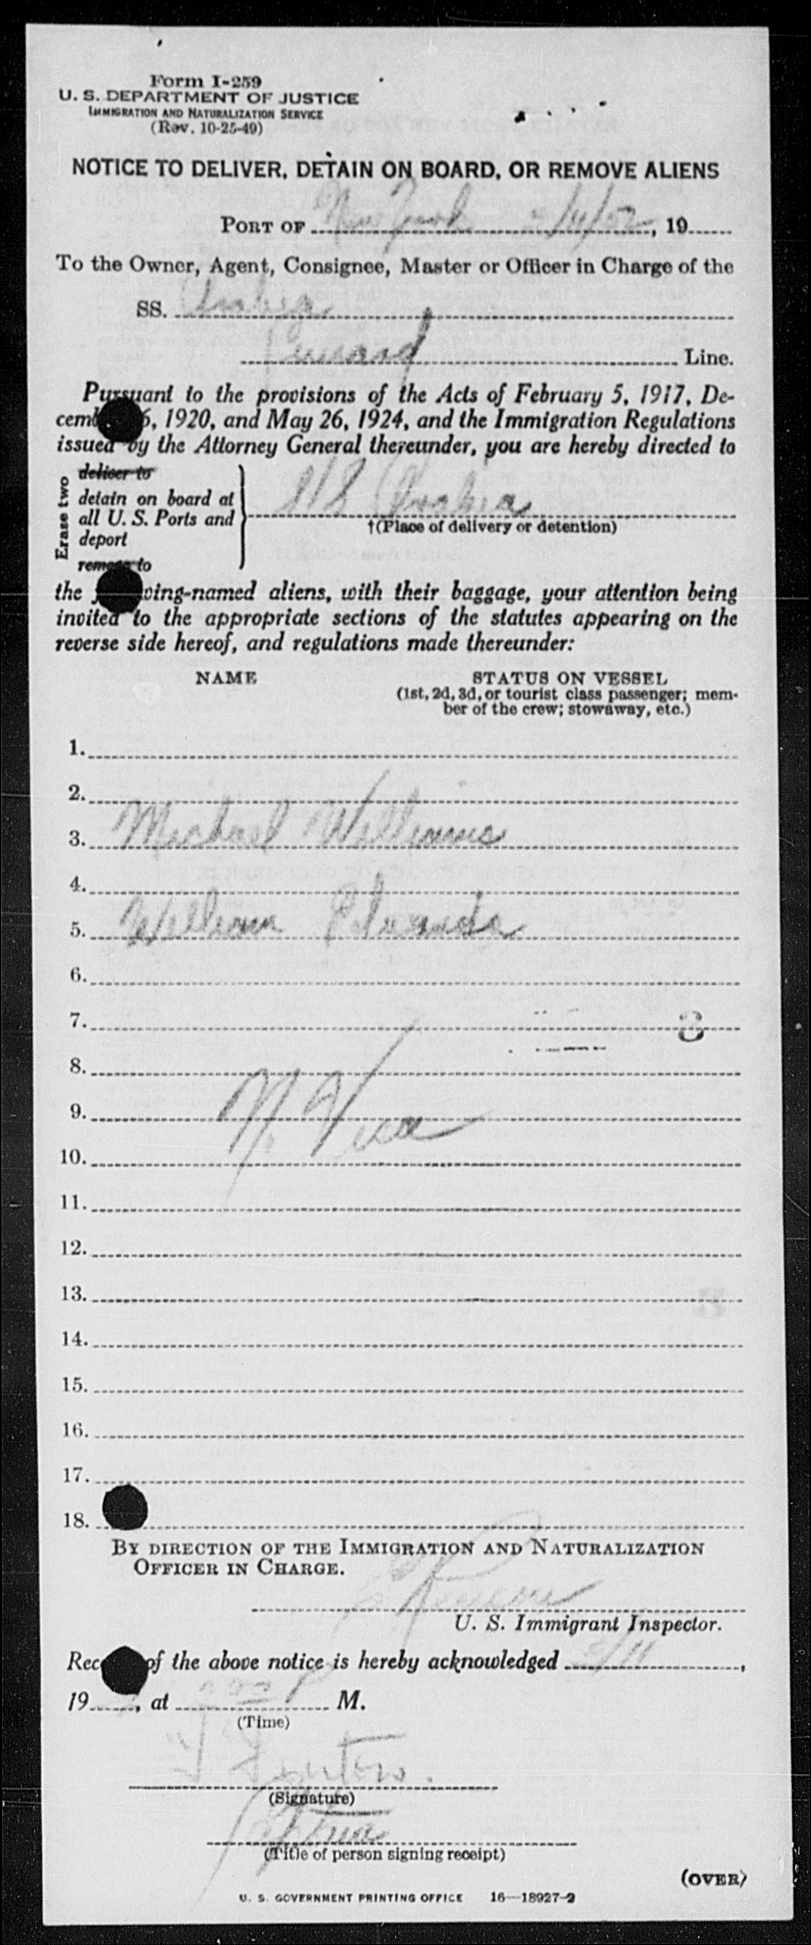 Form I-259
U. S. DEPARTMENT OF JUSTICE
IMMIGRATION AND NATURALIZATION SERVICE
(Rev. 10-25-49)
NOTICE TO DELIVER, DETAIN ON BOARD, OR REMOVE ALIENS
PORT OF New York /11/52, 19
To the Owner, Agent, Consignee, Master or Officer in Charge of the
SS.
Cunard Line.
Pursuant to the provisions of the Acts of February 5, 1917, De-
cember 5, 1920, and May 26, 1924, and the Immigration Regulations
issued by the Attorney General thereunder, you are hereby directed to
Erase two
deliver to
detain on board at
all U. S. Ports and
deport
remove to
S/S
†(Place of delivery or detention)
the following-named aliens, with their baggage, your attention being
invited to the appropriate sections of the statutes appearing on the
reverse side hereof, and regulations made thereunder:
NAME STATUS ON VESSEL
(1st, 2d, 3d, or tourist class passenger; mem-
ber of the crew; stowaway, etc.)
1.
2.
3. Michael Williams
4.
5. William Edwards
6.
7. 3
8.
9. No Visa
10.
11.
12.
13.
14.
15.
16.
17.
18.
BY DIRECTION OF THE IMMIGRATION AND NATURALIZATION
OFFICER IN CHARGE.
U. S. Immigrant Inspector.
Receipt of the above notice is hereby acknowledged /11,
19, at M.
(Time)
(Signature)
(Title of person signing receipt)
(OVER)
U. S. GOVERNMENT PRINTING OFFICE 16—18927-2